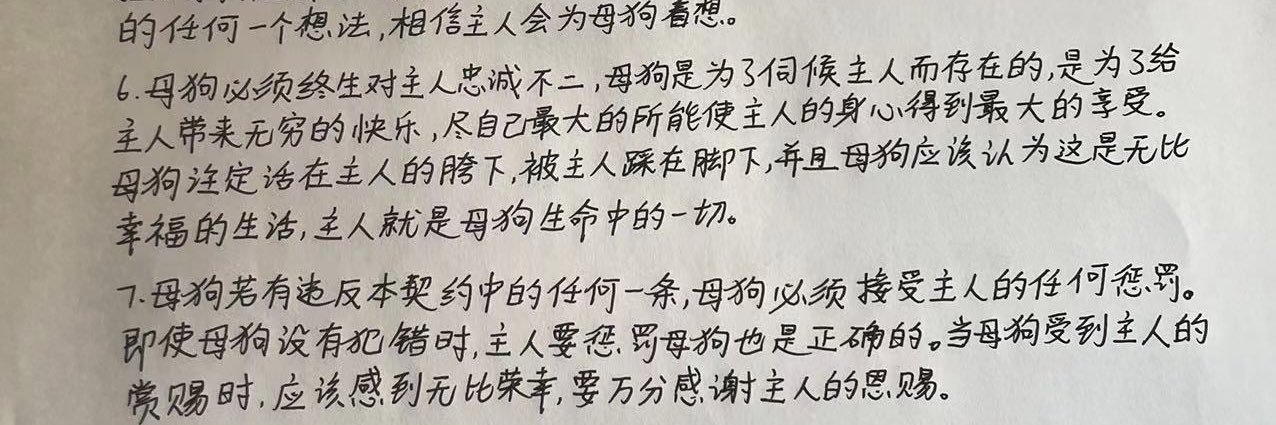 的任何一个想法,相信主人会为母狗着想。
6.母狗必须终生对主人忠诚不二,母狗是为了伺候主人而存在的,是为了给
主人带来无穷的快乐,尽自己最大的所能使主人的身心得到最大的享受。
母狗注定活在主人的胯下,被主人踩在脚下,并且母狗应该认为这是无比
幸福的生活,主人就是母狗生命中的一切。
7.母狗若有违反本契约中的任何一条,母狗必须接受主人的任何惩罚。
即使母狗没有犯错时,主人要惩罚母狗也是正确的。当母狗受到主人的
赏赐时,应该感到无比荣幸,要万分感谢主人的恩赐。